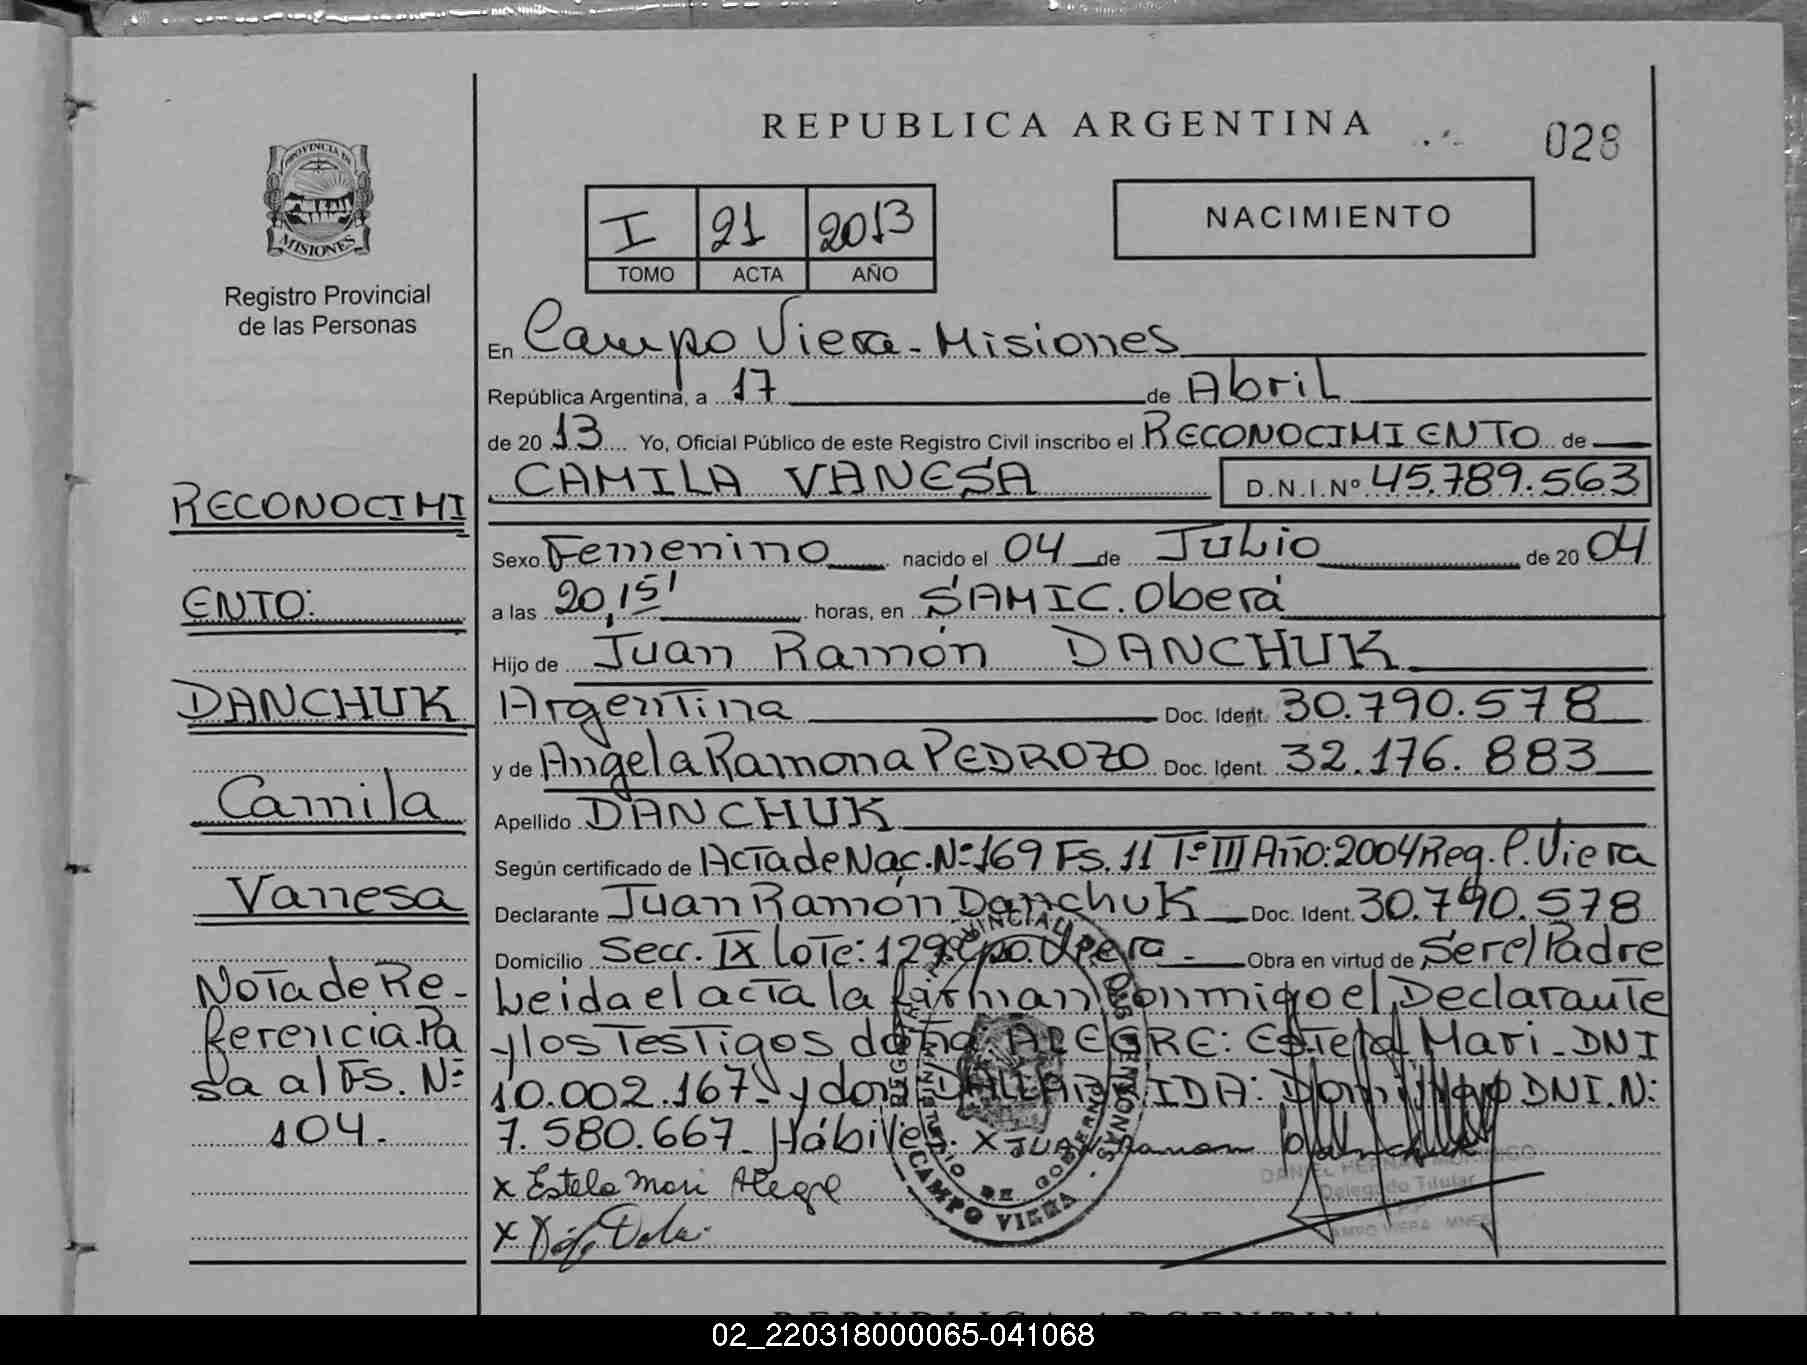 REPUBLICA ARGENTINA
028
PROVINCIA DE
MISIONES
Registro Provincial
de las Personas
I 21 2013
TOMO ACTA AÑO
NACIMIENTO
En Campo Viera - Misiones
República Argentina, a 17 de Abril
de 20 13 Yo, Oficial Público de este Registro Civil inscribo el RECONOCIMIENTO de
CAMILA VANESA D.N.I.Nº 45.789.563
Sexo Femenino nacido el 04 de Julio de 20 04
a las 20,15' horas, en SAMIC. Oberá
Hijo de Juan Ramón DANCHUK
Argentina Doc. Ident. 30.790.578
y de Angela Ramona PEDROZO Doc. Ident. 32.176.883
Apellido DANCHUK
Según certificado de Acta de Nac. Nº 169 Fs. 11 Tº III Año: 2004 Reg. C. Viera
Declarante Juan Ramón Danchuk Doc. Ident. 30.790.578
Domicilio Secc. IX Lote: 129 Cpo. Viera - Obra en virtud de Ser el Padre
Leida el acta la firman conmigo el Declarante
y los Testigos doña ALEGRE: Estela Mari - DNI
10.002.167 - y don IDA: DNI. N:
7.580.667 - Hábiles. X JUAN Ramon Danchuk
X Estela Mari Alegre
X
RECONOCIMI
ENTO:
DANCHUK
Camila
Vanesa
Nota de Re-
ferencia Pa
sa al Fs. Nº
104.
REGISTRO PROVINCIAL DE LAS PERSONAS - CAMPO VIERA
MINISTERIO DE GOBIERNO
Delegado Titular
CAMPO VIERA - MNES
REPUBLICA ARGENTINA
02_220318000065-041068